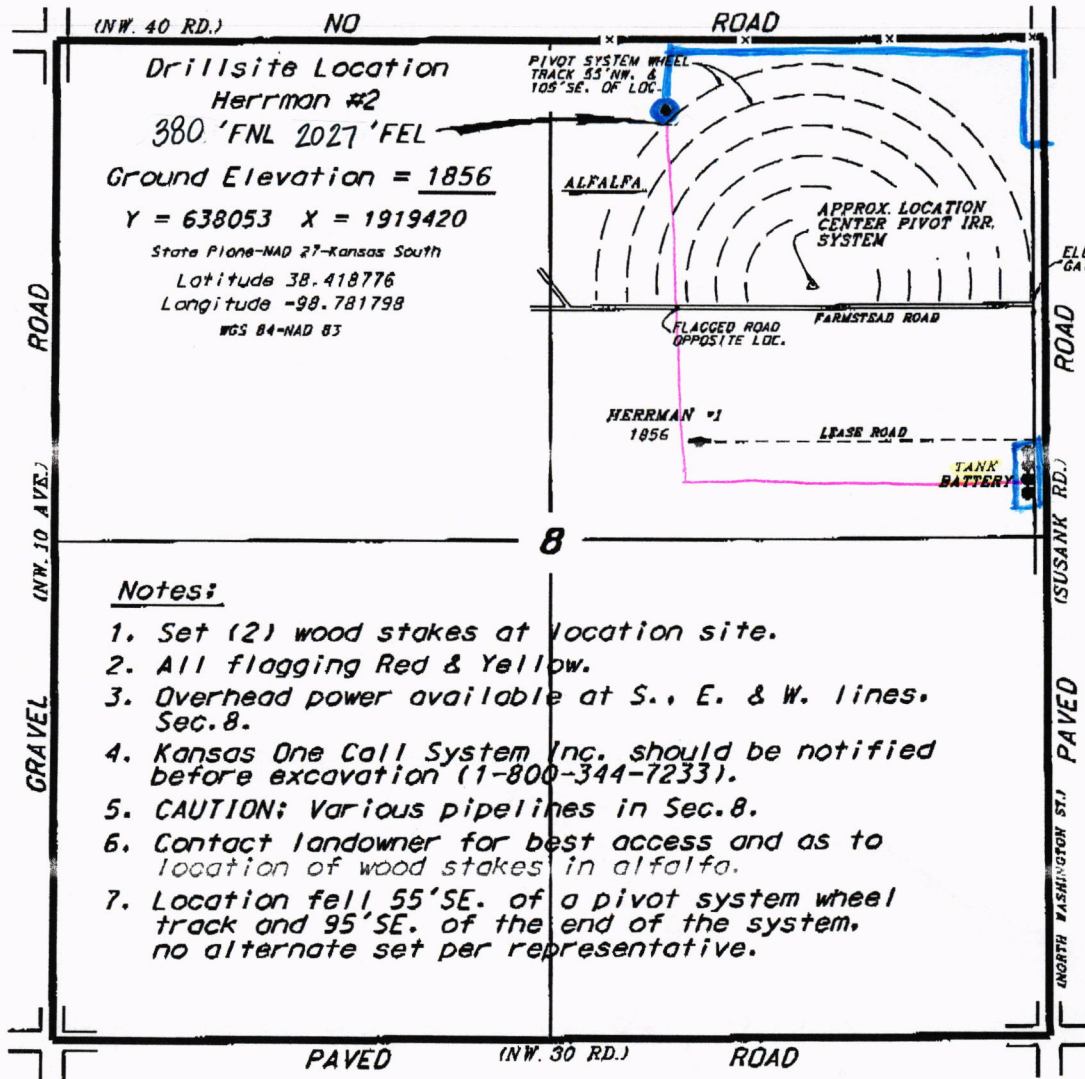 (NW. 40 RD.) NO ROAD
Drillsite Location
Herrman #2
380 'FNL 2027 'FEL
Ground Elevation = 1856
Y = 638053 X = 1919420
State Plane-NAD 27-Kansas South
Latitude 38.418776
Longitude -98.781798
WGS 84-NAD 83
PIVOT SYSTEM WHEEL
TRACK 55'NW. &
105'SE. OF LOC.
ALFALFA
APPROX. LOCATION
CENTER PIVOT IRR.
SYSTEM
FLAGGED ROAD
OPPOSITE LOC.
FARMSTEAD ROAD
HERRMAN #1
1856
LEASE ROAD
TANK
BATTERY
8
Notes:
1. Set (2) wood stakes at location site.
2. All flagging Red & Yellow.
3. Overhead power available at S., E. & W. lines.
Sec.8.
4. Kansas One Call System Inc. should be notified
before excavation (1-800-344-7233).
5. CAUTION: Various pipelines in Sec.8.
6. Contact landowner for best access and as to
location of wood stakes in alfalfa.
7. Location fell 55'SE. of a pivot system wheel
track and 95'SE. of the end of the system,
no alternate set per representative.
GRAVEL (NW. 10 AVE.) ROAD
(NORTH WASHINGTON ST.) PAVED (SUSANK RD.) ROAD
PAVED (NW. 30 RD.) ROAD